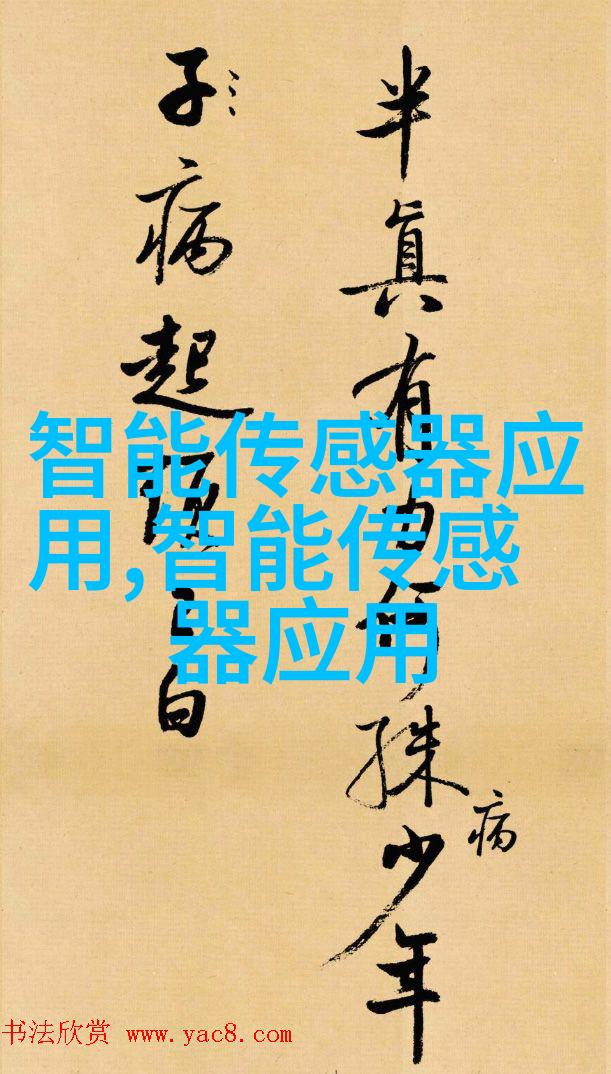 半眞有
少年
病
子病起
白
智能传感器应
用,智能传感
器应用
书法欣赏 www.yac8.com